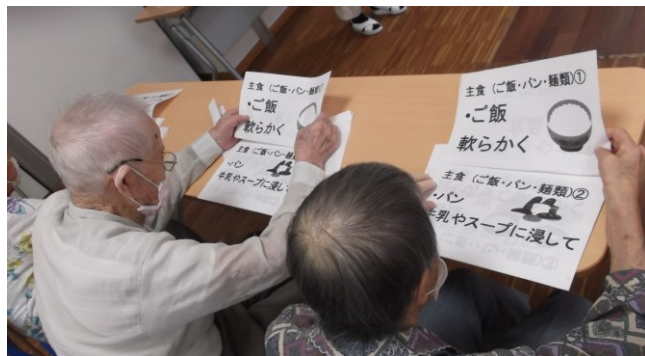 主食（ご飯・パン・麺類）①
・ご飯
軟らかく
主食（ご飯・パン・麺
・パン
牛乳やスープに浸して
主食（ご飯・パン・麺類）①
・ご飯
軟らかく
主食（ご飯・パン・麺類）②
・パン
牛乳やスープに浸して